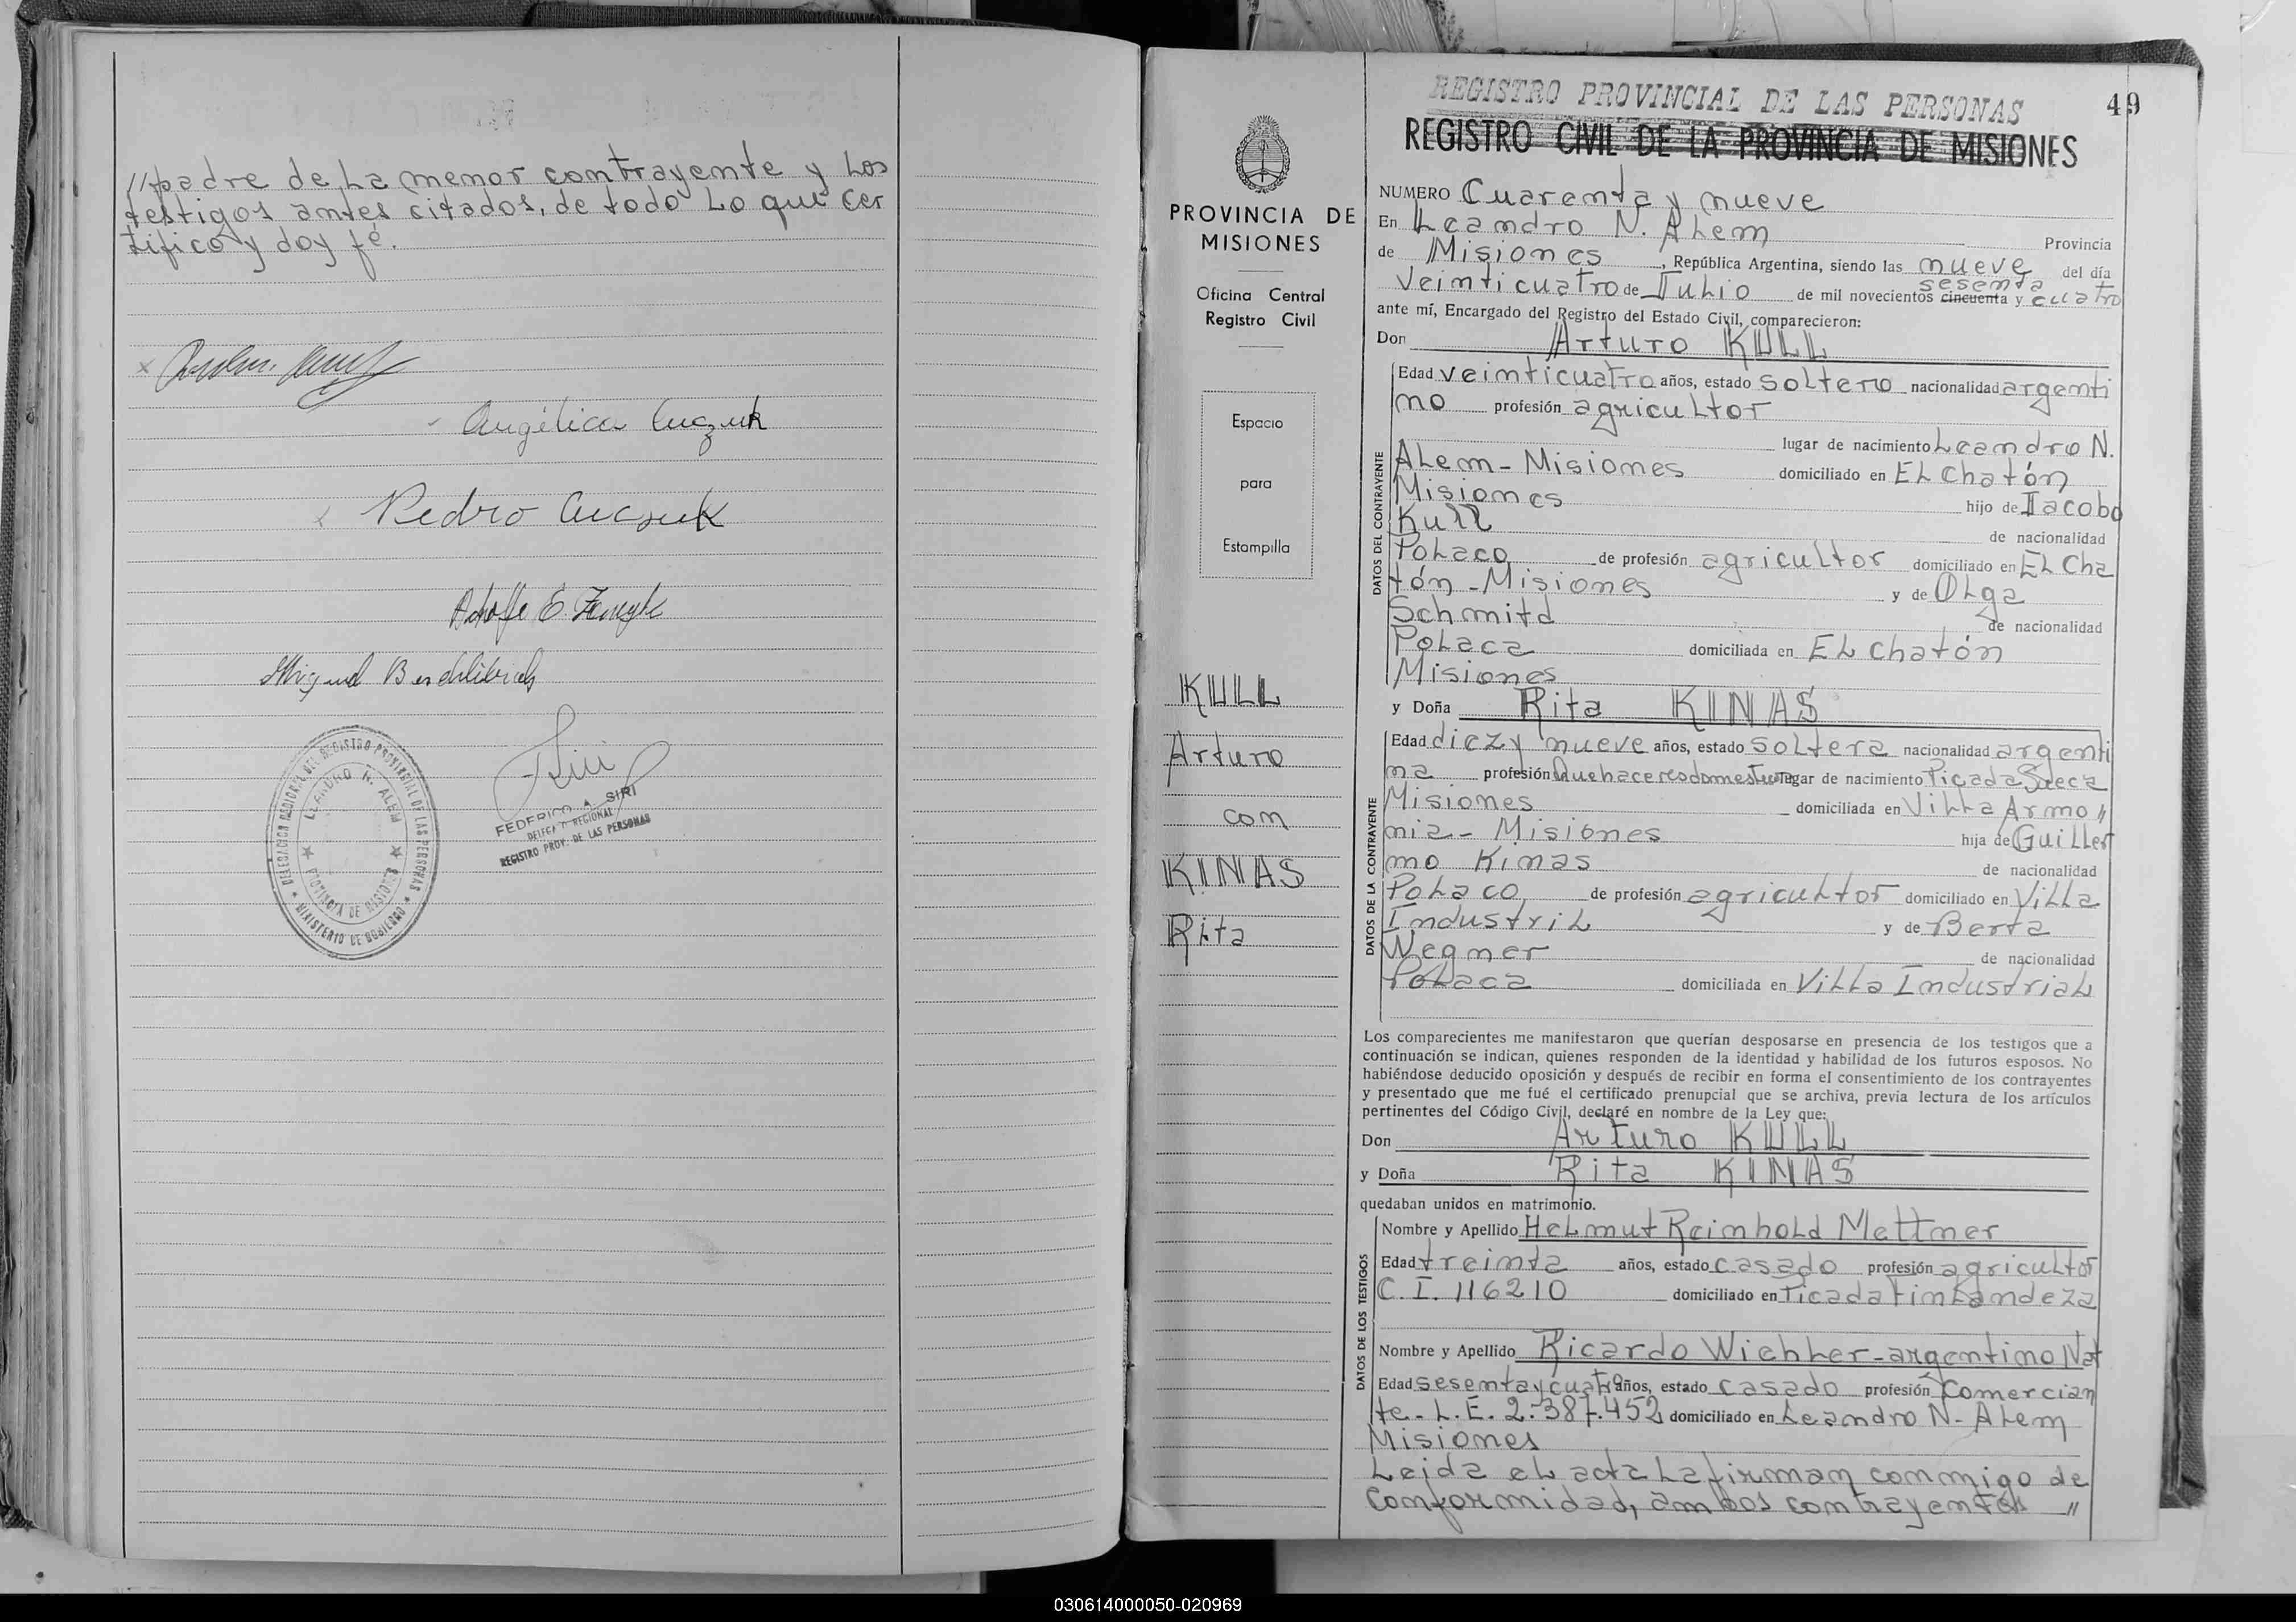 //padre de La menor contrayente y Los
testigos antes citados, de todo Lo que cer
tifico y doy fé.
Angélica Luczuk
Pedro Luczuk
Miguel
DELEGACION REGIONAL DEL REGISTRO PROVINCIAL DE LAS PERSONAS
LEANDRO N. ALEM
PROVINCIA DE MISIONES
MINISTERIO DE GOBIERNO
FEDERICO A. SIRI
DELEGADO REGIONAL
REGISTRO PROV. DE LAS PERSONAS
PROVINCIA DE
MISIONES
Oficina Central
Registro Civil
Espacio
para
Estampilla
KULL
Arturo
con
KINAS
Rita
REGISTRO PROVINCIAL DE LAS PERSONAS
49
REGISTRO CIVIL DE LA PROVINCIA DE MISIONES
NUMERO Cuarenta y nueve
En Leandro N. ALem Provincia
de Misiones, República Argentina, siendo las nueve del día
sesenta
Veinticuatro de Julio de mil novecientos cincuenta y cuatro
ante mí, Encargado del Registro del Estado Civil, comparecieron:
Don Arturo KULL
DATOS DEL CONTRAYENTE
Edad veinticuatro años, estado soltero nacionalidad argenti
no profesión agricultor
lugar de nacimiento Leandro N.
ALem - Misiones domiciliado en EL Chatón
Misiones hijo de Jacobo
Kull de nacionalidad
Polaco de profesión agricultor domiciliado en EL Cha
tón - Misiones y de Olga
Schmitd de nacionalidad
Polaca domiciliada en EL Chatón
Misiones
y Doña Rita KINAS
DATOS DE LA CONTRAYENTE
Edad diez y nueve años, estado soltera nacionalidad argenti
na profesión Quehaceres domest lugar de nacimiento Picada Sueca
Misiones domiciliada en Villa Armo //
nia - Misiones hija de Guiller
mo Kinas de nacionalidad
Polaco de profesión agricultor domiciliado en Villa
Industril y de Berta
Wegner de nacionalidad
Polaca domiciliada en Villa Industrial
Los comparecientes me manifestaron que querían desposarse en presencia de los testigos que a
continuación se indican, quienes responden de la identidad y habilidad de los futuros esposos. No
habiéndose deducido oposición y después de recibir en forma el consentimiento de los contrayentes
y presentado que me fué el certificado prenupcial que se archiva, previa lectura de los artículos
pertinentes del Código Civil, declaré en nombre de la Ley que:
Don Arturo KULL
y Doña Rita KINAS
quedaban unidos en matrimonio.
DATOS DE LOS TESTIGOS
Nombre y Apellido Helmut Reinhold Mettner
Edad treinta años, estado casado profesión agricultor
C. I. 116210 domiciliado en Picada Finlandeza
Nombre y Apellido Ricardo Wiehler - argentino Nat
Edad sesenta y cuatro años, estado casado profesión Comercian
te - L. E. 2.387.452 domiciliado en Leandro N - Alem
Misiones
Leida el acta La firman conmigo de
conformidad, ambos contrayentes //
030614000050-020969